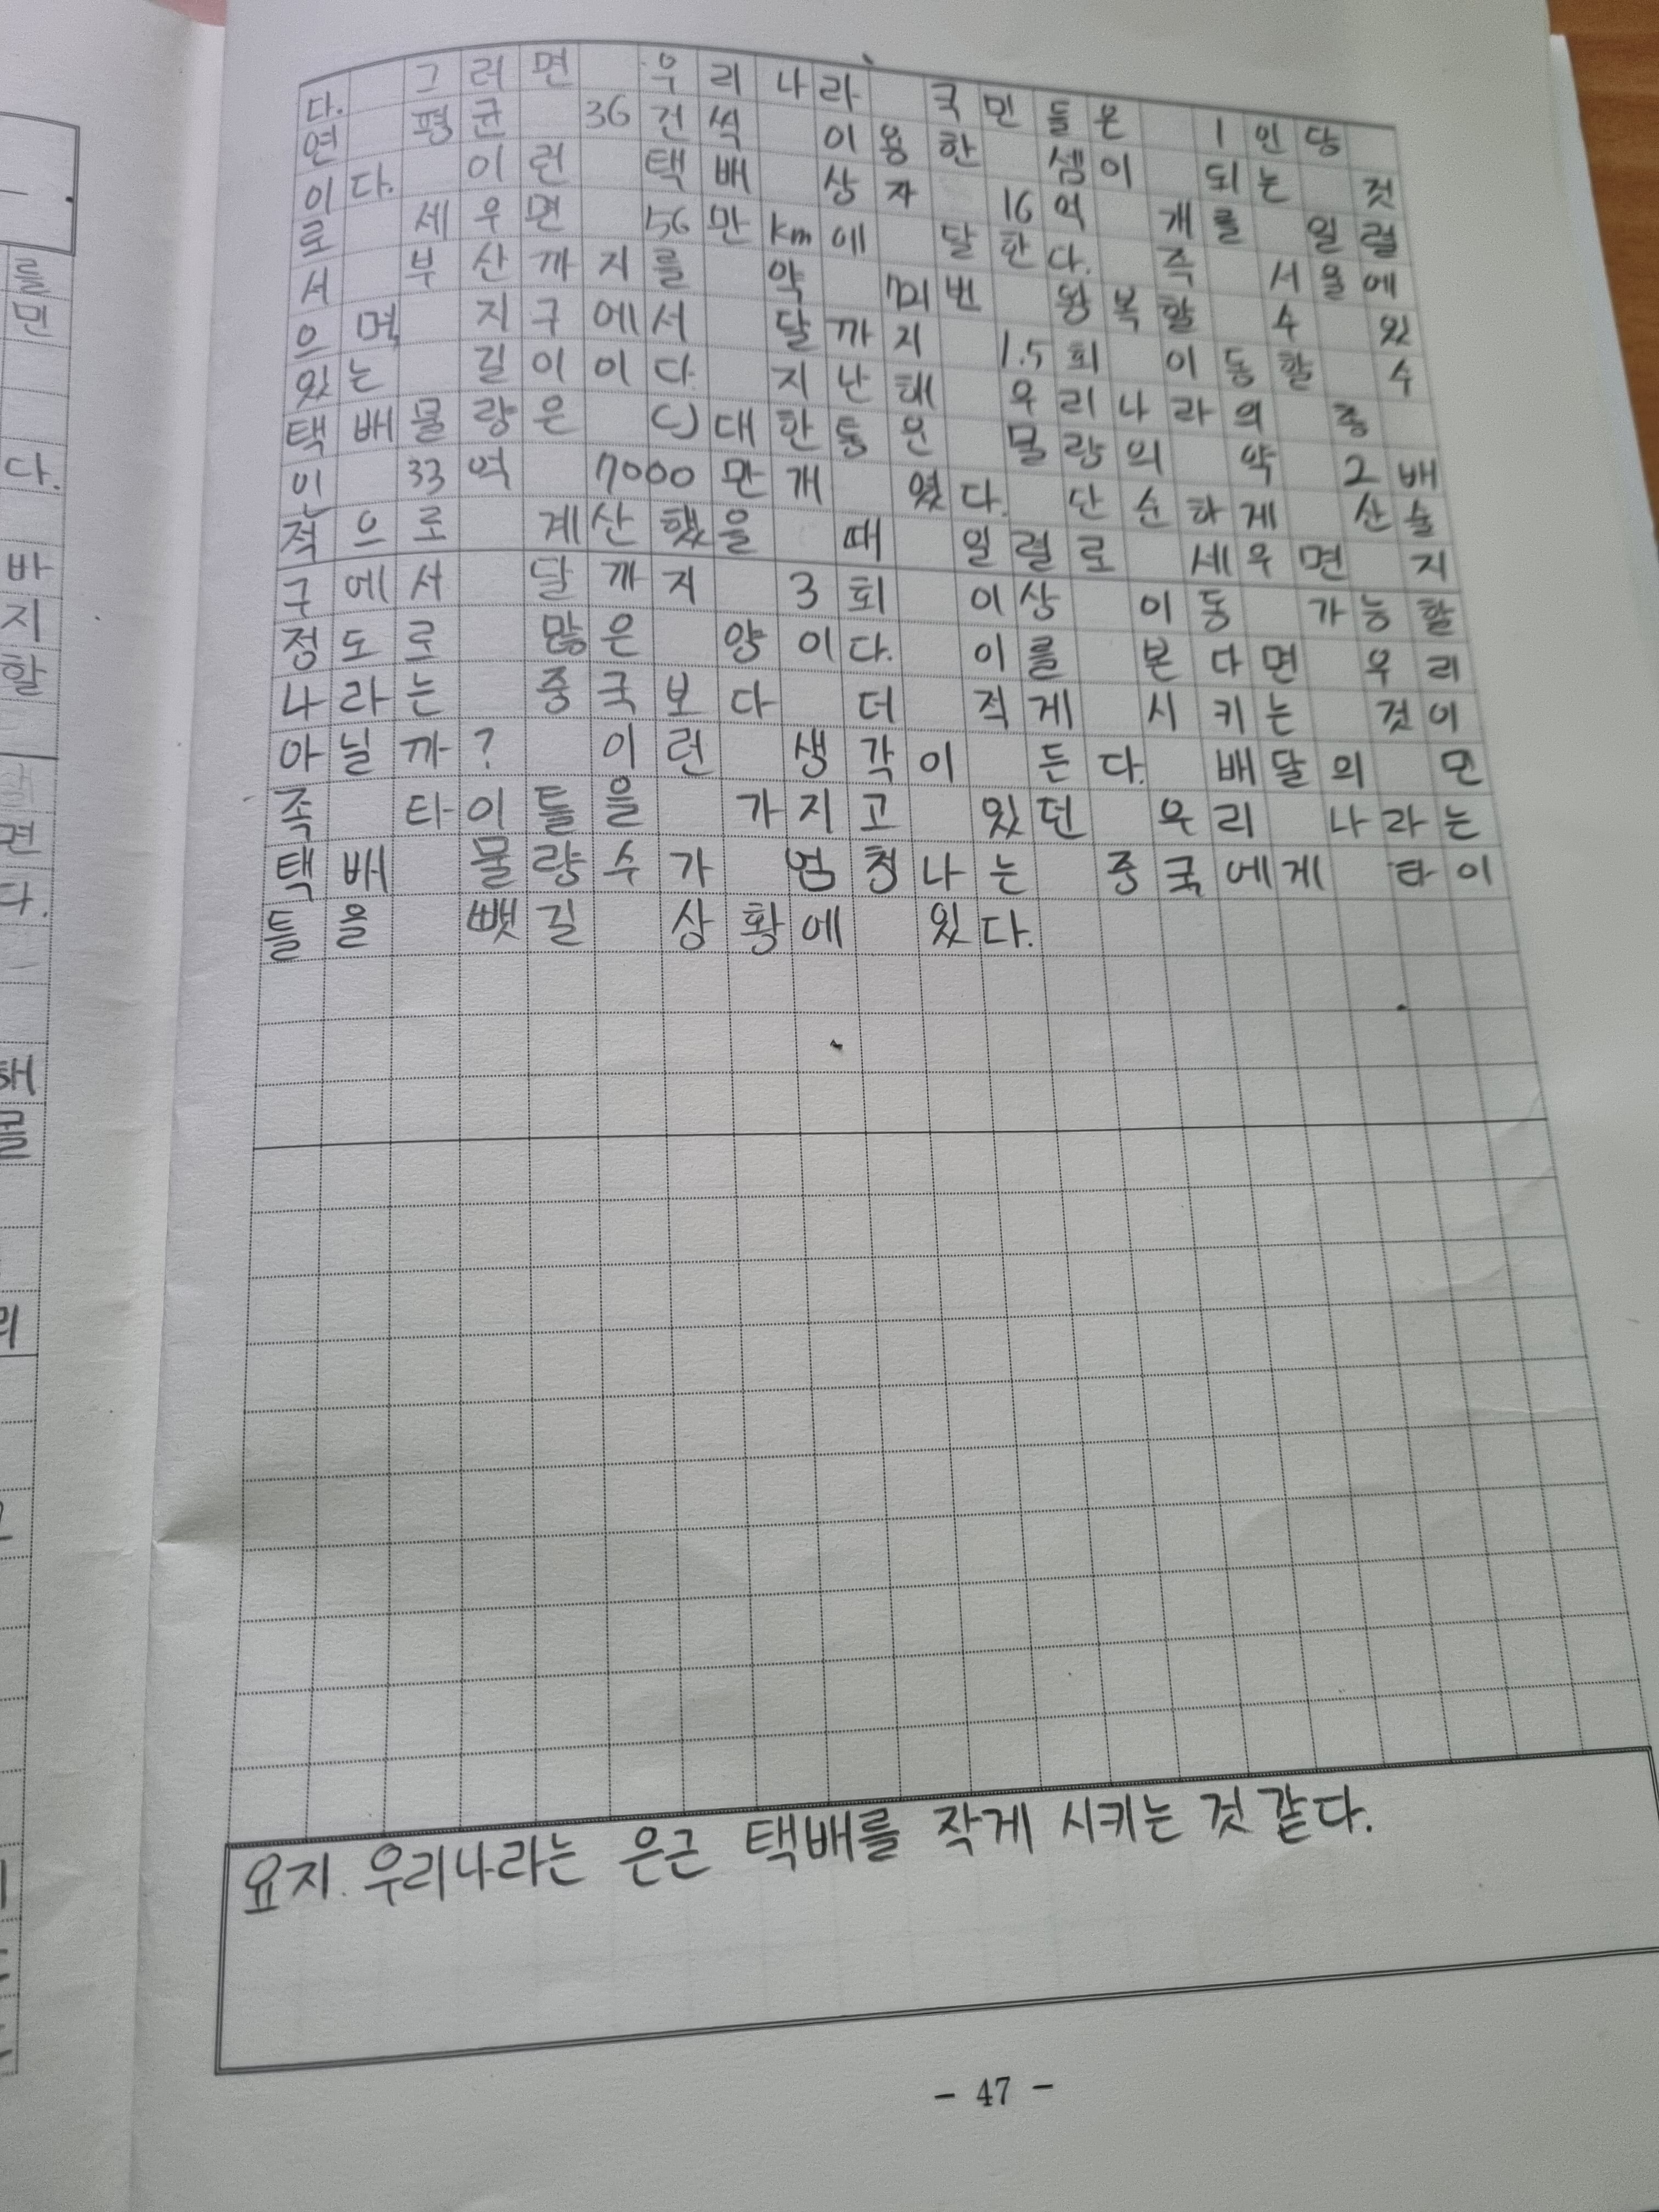 다. 그러면 우리나라 국민들은 1인당
연 평균 36건씩 이용한 셈이 되는 것
이다. 이런 택배 상자 16억 개를 일렬
로 세우면 56만km에 달한다. 즉 서울에
서 부산까지를 약 번 왕복할 수 있
으며, 지구에서 달까지 1.5회 이동할 수
있는 길이이다. 지난해 우리나라의 총
택배물량은 CJ대한통운 물량의 약 2배
인 33억 7000만개 였다. 단순하게 산술
적으로 계산했을 때 일렬로 세우면 지
구에서 달까지 3회 이상 이동 가능할
정도로 많은 양이다. 이를 본다면 우리
나라는 중국보다 더 적게 시키는 것이
아닐까? 이런 생각이 든다. 배달의 민
족 타이틀을 가지고 있던 우리 나라는
택배 물량수가 엄청나는 중국에게 타이
틀을 뺏길 상황에 있다.
요지. 우리나라는 은근 택배를 작게 시키는 것 같다.
- 47 -